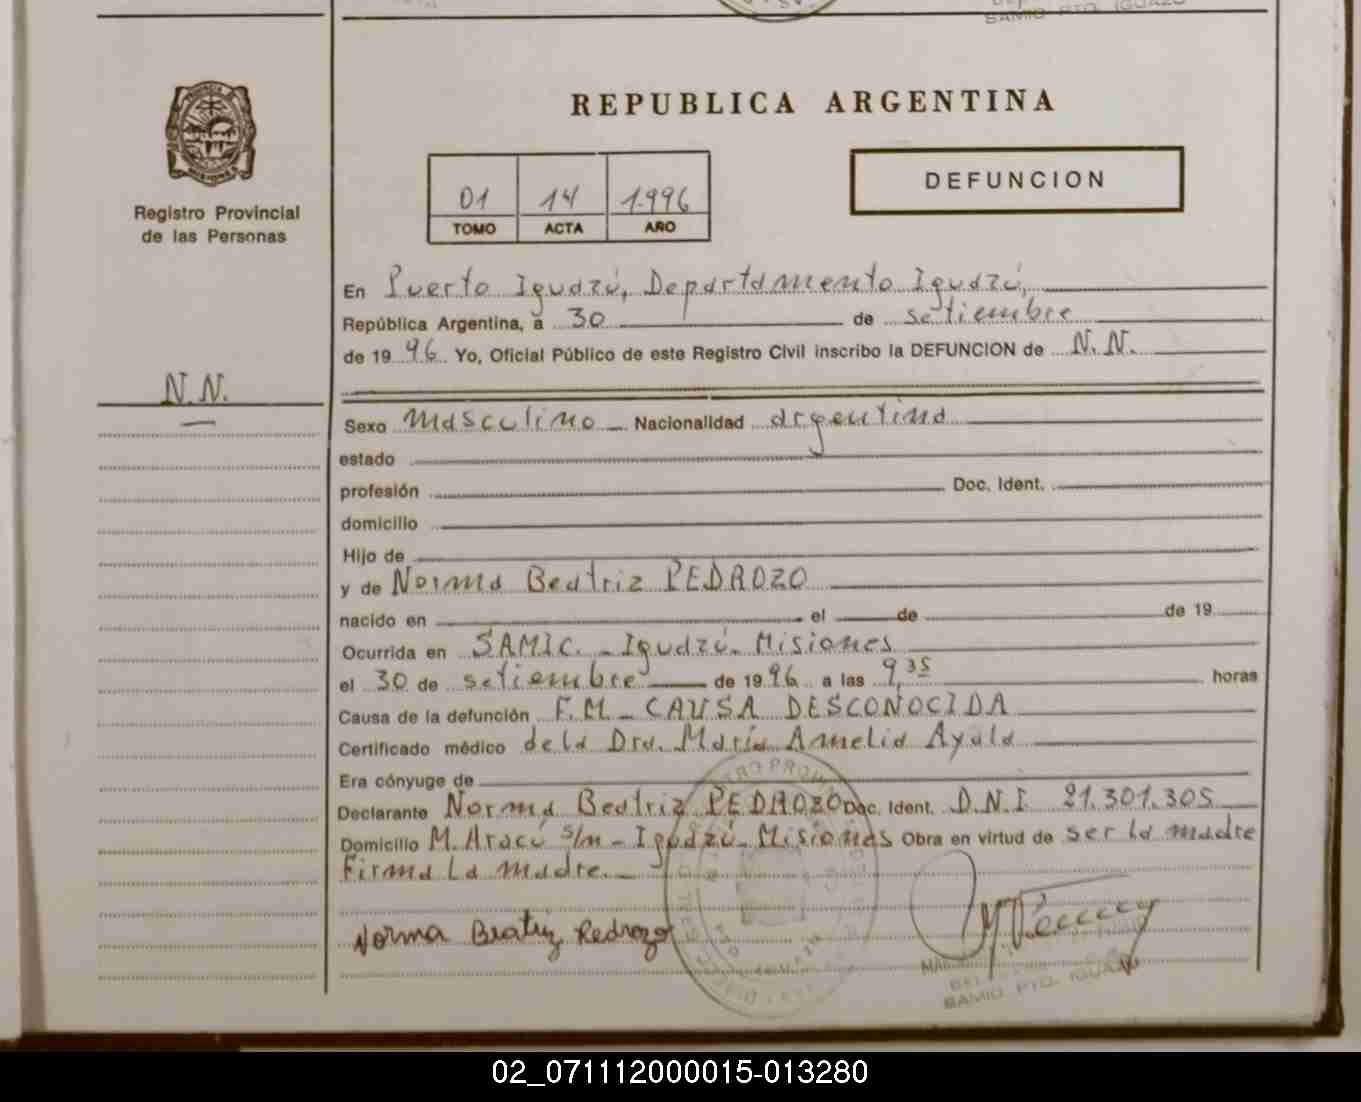 SAMIC PTO. IGUAZU
REPUBLICA ARGENTINA
PROVINCIA DE
MISIONES
Registro Provincial
de las Personas
01 14 1.996
TOMO ACTA AÑO
DEFUNCION
En Puerto Iguazú, Departamento Iguazú,
República Argentina, a 30 de setiembre
de 19 96 Yo, Oficial Público de este Registro Civil inscribo la DEFUNCION de N.N.
N.N.
Sexo masculino Nacionalidad argentina
estado
profesión Doc. Ident.
domicilio
Hijo de
y de Norma Beatriz PEDROZO
nacido en el de de 19
Ocurrida en SAMIC. - Iguazú - Misiones
el 30 de setiembre de 19 96 a las 9,35 horas
Causa de la defunción F.M - CAUSA DESCONOCIDA
Certificado médico de la Dra. María Amelia Ayala
Era cónyuge de
Declarante Norma Beatriz PEDROZO Doc. Ident. D.N.I 21.301.305
Domicilio M. Aracú s/n - Iguazú - Misiones Obra en virtud de ser la madre
Firma La madre. -
Norma Beatriz Pedrozo
SAMIC PTO. IGUAZU
02_071112000015-013280